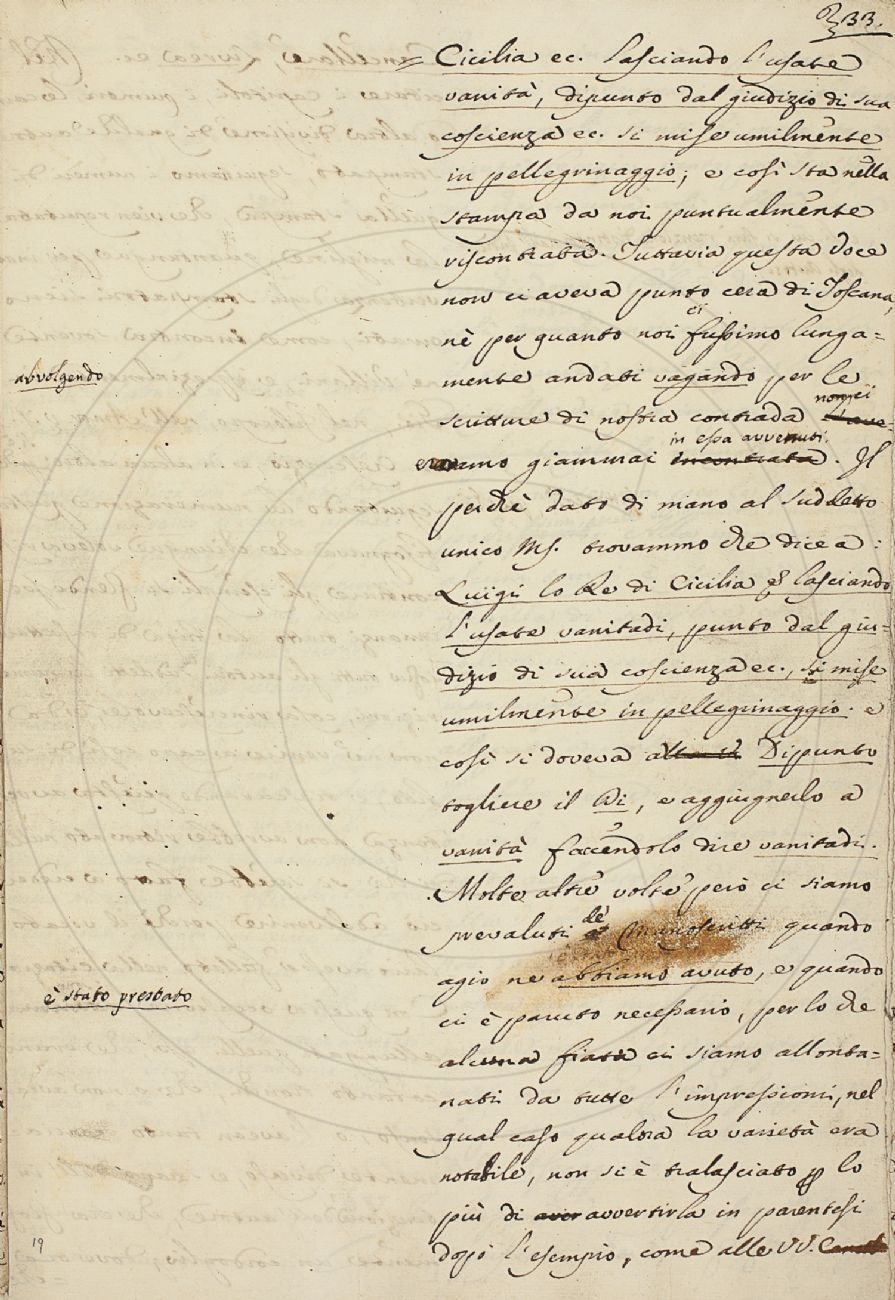 233.
= Cicilia ec. lasciando l'usate
vanità, dipunto dal giudizio di sua
coscienza ec. si mise umilmente
in pellegrinaggio; e così sta nella
stampa da noi puntualmente
riscontrata. Tuttavia questa voce
non ci aveva punto cera di Toscana,
nè per quanto noi ci fussimo lunga=
mente andati vagando per le
avvolgendo
scritture di nostra contrada non ci
eravamo giammai in essa avvenuti. Il
perchè dato di mano al suddetto
unico Ms. trovammo che dicea:
Luigi lo Re di Cicilia ec. lasciando
l'usate vanitadi, punto dal giu=
dizio di sua coscienza ec., si mise
umilmente in pellegrinaggio. e
così si doveva a Dipunto
togliere il Di, e aggiugnerlo a
vanità faccendolo dire vanitadi.
Molte altre volte però ci siamo
prevaluti de' Manoscritti quando
agio ne abbiamo avuto, e quando
è stato prestato
ci è paruto necessario, per lo che
alcuna fiata ci siamo allonta=
nati da tutte l'impressioni, nel
qual caso qualora la varietà era
notabile, non si è tralasciato per lo
più di avvertirla in parentesi
dopo l'esempio, come alle VV.
19